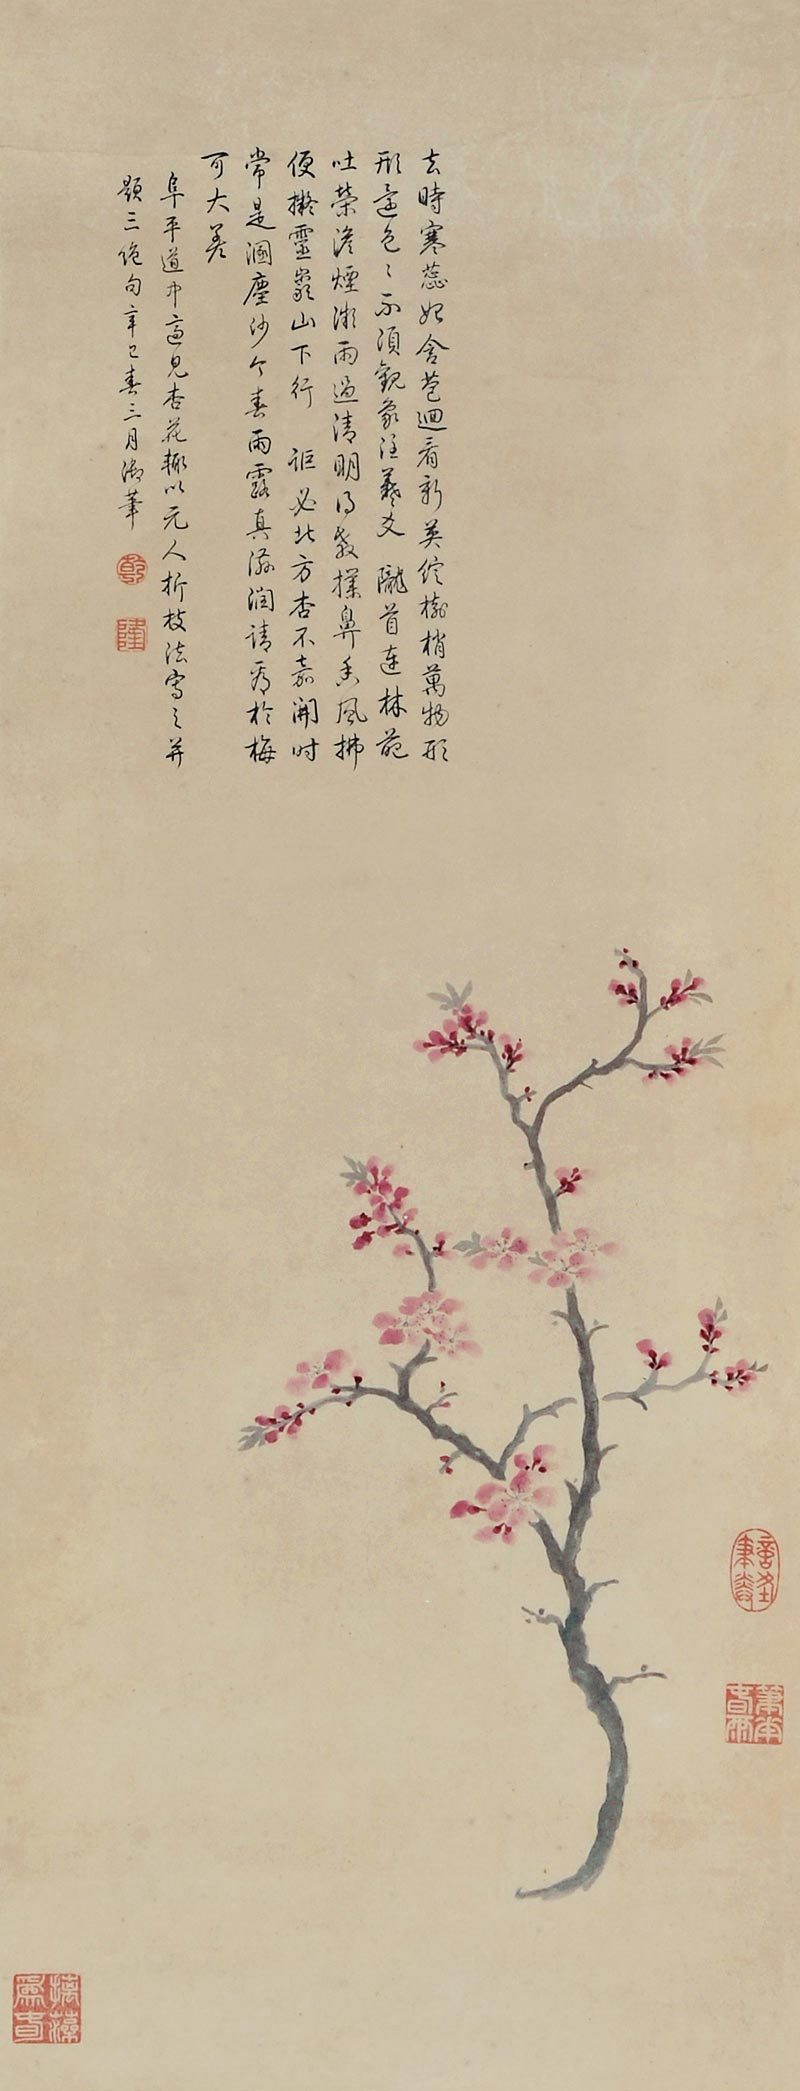 去時寒蕊始含苞迴看新英綻樹梢萬物形
形還色〻不須觀象注羲爻 隴首連林葩
吐榮澹煙微雨過清明何致撲鼻香風拂
便擬靈巖山下行 詎必北方杏不嘉開時
常是涸塵沙今春雨露真滋潤請看於梅
可大差
阜平道中喜見杏花輒以元人折枝法寫之並
題三絕句辛巳春三月御筆
乾
隆